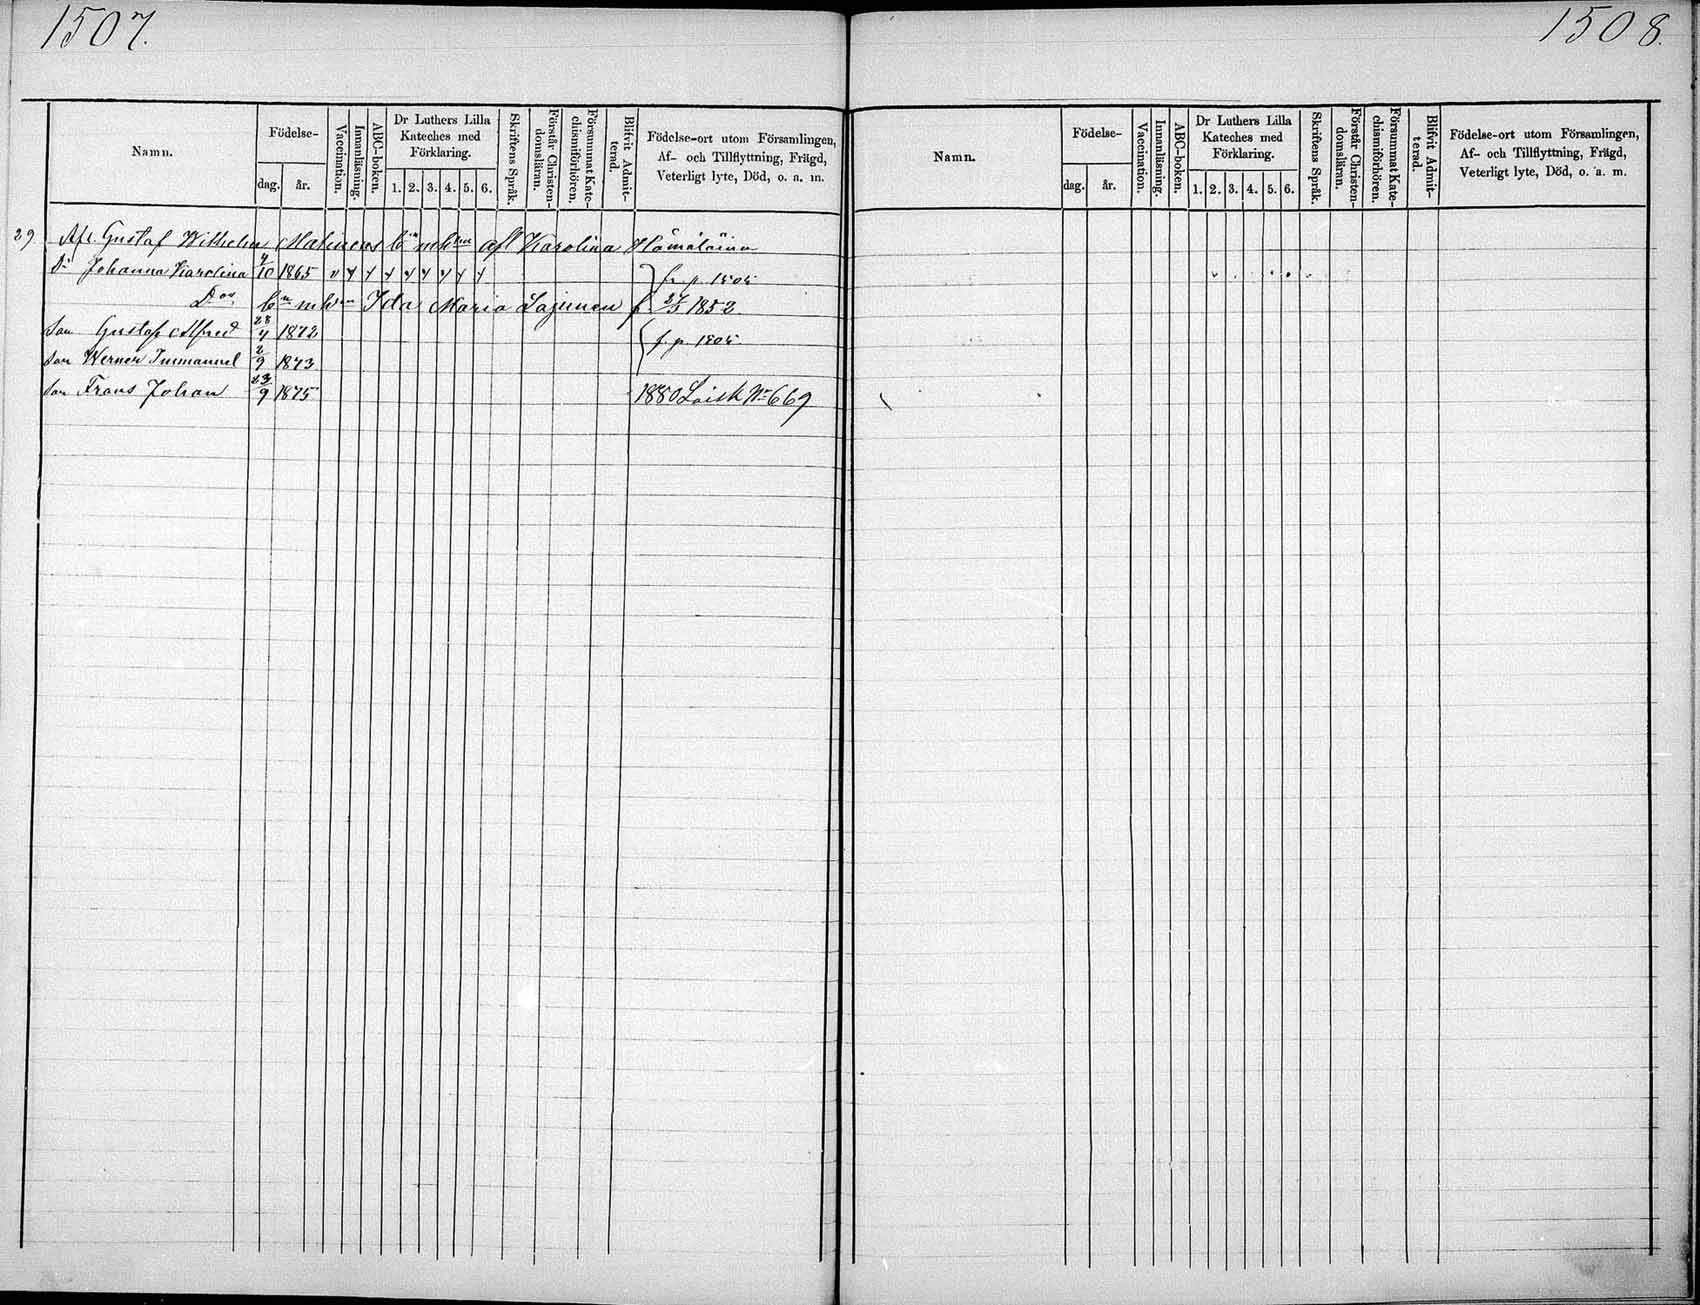 1507.
1508.
Namn.
Födelse-
dag.
år.
Vaccination.
Innanläsning.
ABC-boken.
Dr Luthers Lilla
Kateches med
Förklaring.
1. 2. 3. 4. 5. 6.
Skriftens Språk.
Förstår Christen-
domsläran.
Försummat Kate-
chismiförhören.
Blifvit Admit-
terad.
Födelse-ort utom Församlingen,
Af- och Tillflyttning, Frägd,
Veterligt lyte, Död, o. a. m.
29 Afl. Gustaf Wilhelm Malinens afl Karolina
Dr Johanna Karolina 4/10 1865 fr. p. 1505
Ida Maria f 1852
Son Gustaf Alfred 28/4 1872 f. p. 1505
Son Werner Immanuel 2/9 1873
Son Frans Johan 23/9 1875 1880 Loisk No 669
Namn.
Födelse-
dag.
år.
Vaccination.
Innanläsning.
ABC-boken.
Dr Luthers Lilla
Kateches med
Förklaring.
1. 2. 3. 4. 5. 6.
Skriftens Språk.
Förstår Christen-
domsläran.
Försummat Kate-
chismiförhören.
Blifvit Admit-
terad.
Födelse-ort utom Församlingen,
Af- och Tillflyttning, Frägd,
Veterligt lyte, Död, o. a. m.